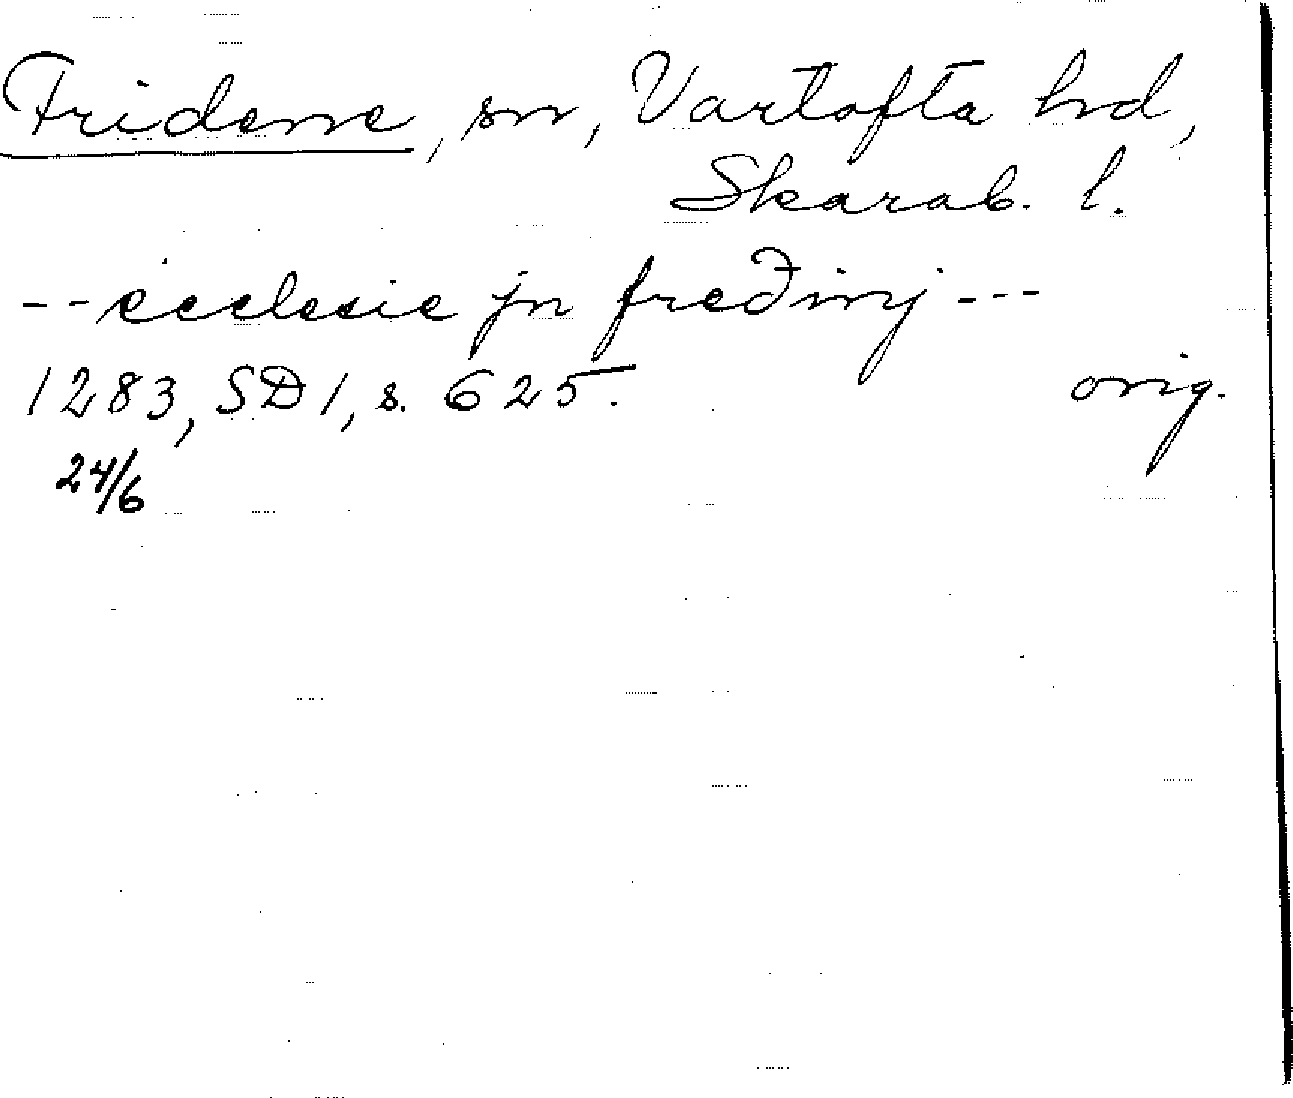 Fridene, sn, Vartofta hd,
Skarab. l.
-- ecclesie jn freðinj ---
1283, SD 1, s. 625. orig.
24/6